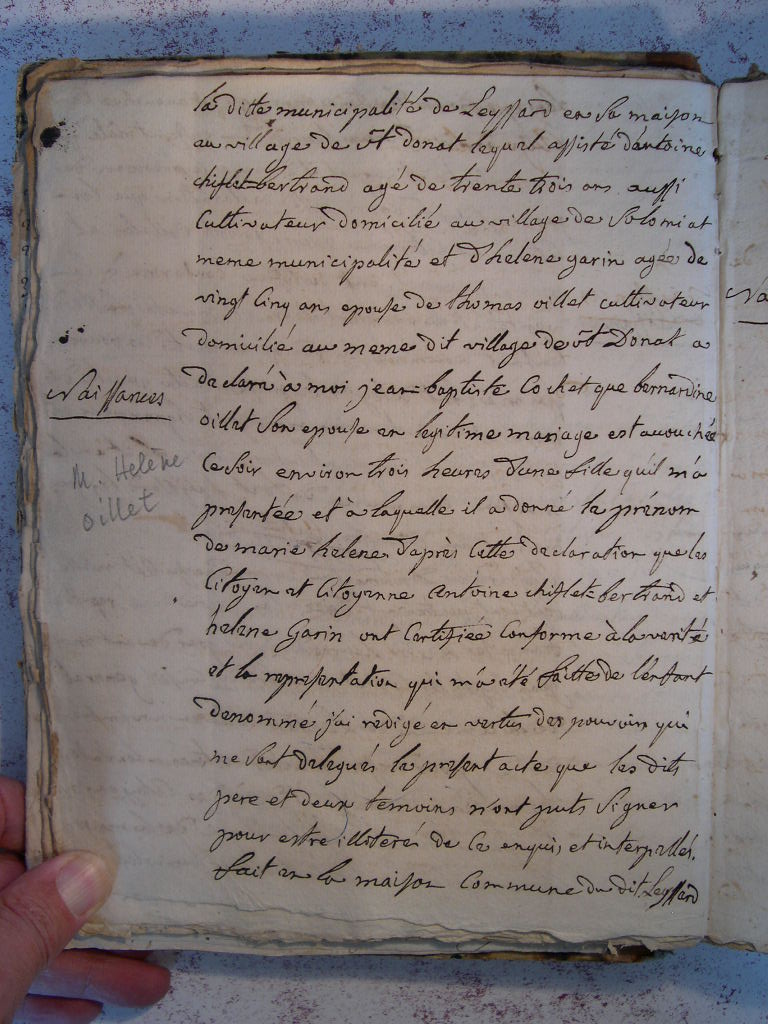 la ditte municipalité de Leyssard en sa maison
au village de st donat lequel assisté d'antoine
chiflet-bertrand agé de trente trois ans aussi
Cultivateur domicilié au village de Solomiat
meme municipalité et d'helene garin agée de
vingt Cinq ans epouse de thomas oillet cultivateur
domicilié au meme dit village de st Donat a
declaré à moi jean-baptiste Cochet que bernardine
oillet Son epouse en legitime mariage est accouchée
Ce soir environ trois heures d'une fille qu'il m'a
presentée et à laquelle il a donné le prénom
de marie helene. D'après Cette declaration que les
Citoyen et Citoyenne Antoine chiflet-bertrand et
helene Garin ont Certifiée Conforme à la verité
et la representation qui m'a été faitte de l'enfant
denommé j'ai redigé en vertus des pouvoirs qui
me sont delegués le present acte que les dits
pere et deux temoins n'ont puts Signer
pour estre illiterés de Ce enquis et interpellés.
fait en la maison Commune du dit Leyssard
Naissances
M. Helène
oillet
Na